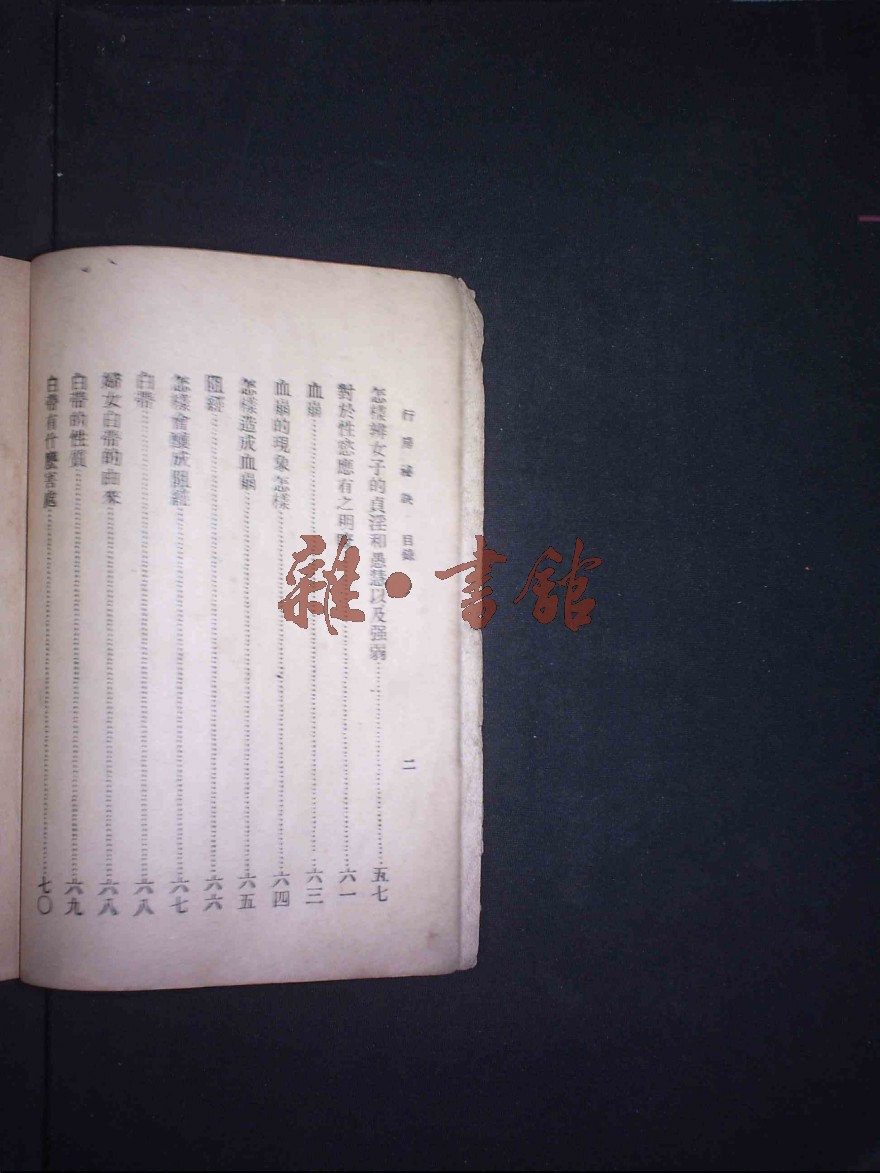 行房秘訣·目錄
二
怎樣辨女子的貞淫和愚慧以及强弱……五七
對於性慾應有之明……六一
血崩……六三
血崩的現象怎樣……六四
怎樣造成血崩……六五
閉經……六六
怎樣會釀成閉經……六七
白帶……六八
婦女白帶的由來……六八
白帶的性質……六九
白帶有什麼害處……七〇
雜·書館